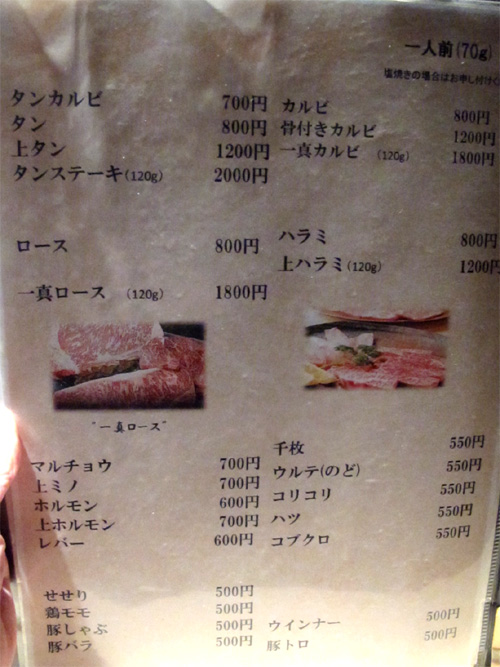 一人前(70g)
塩焼きの場合はお申し付けく
タンカルビ 700円
タン 800円
上タン 1200円
タンステーキ(120g) 2000円
カルビ 800円
骨付きカルビ 1200円
一真カルビ (120g) 1800円
ロース 800円
一真ロース (120g) 1800円
ハラミ 800円
上ハラミ(120g) 1200円
"一真ロース"
マルチョウ 700円
上ミノ 700円
ホルモン 600円
上ホルモン 700円
レバー 600円
千枚 550円
ウルテ(のど) 550円
コリコリ 550円
ハツ 550円
コブクロ 550円
せせり 500円
鶏モモ 500円
豚しゃぶ 500円
豚バラ 500円
ウインナー 500円
豚トロ 500円